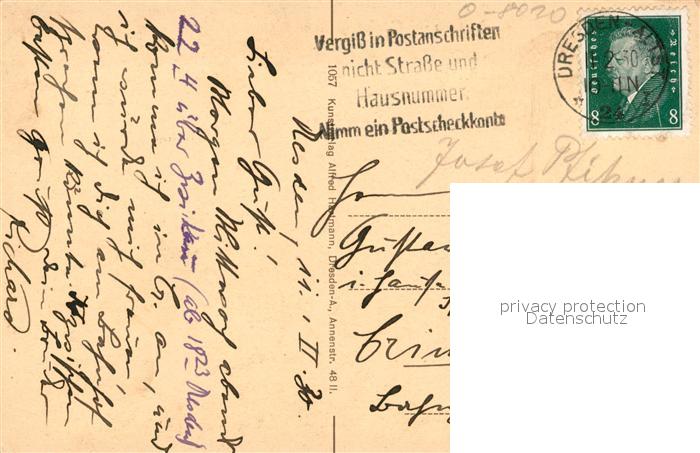 O-8020
Vergiß in Postanschriften
nicht Straße und
Hausnummer.
Nimm ein Postscheckkonto
DRESDEN-ALTST.
24
Deutsches Reich
8 8
Josef
1057 Kunstverlag Alfred Hartmann, Dresden-A., Annenstr. 48 II.
Dresden, 11. II. 30.
Lieber Gustl!
Morgen Mittwoch abend
22 über Zwickau (ab 18 23 Dresden)
komme ich in C. an, und
ich würde mich freuen,
wenn ich dich am Bahnhof
sprechen könnte.
Besten Gruß Dein Bruder
Richard.
Herrn
Gustav
Crim
Bahn
privacy protection
Datenschutz